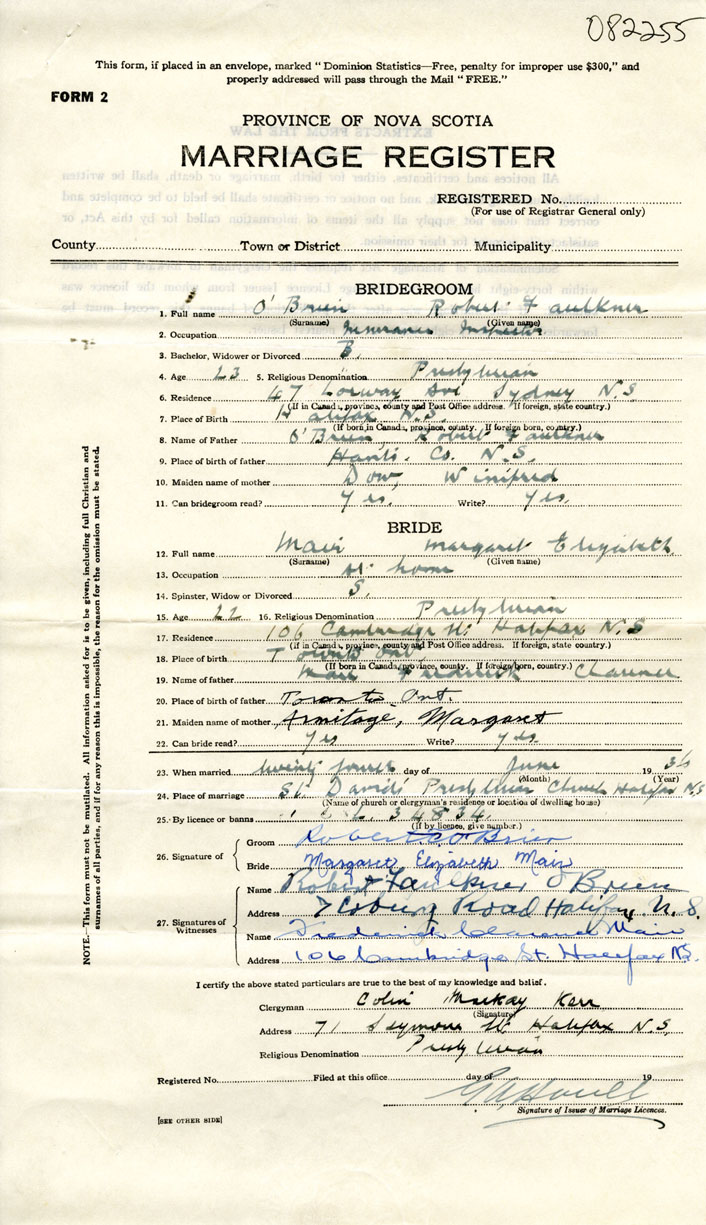 082255
This form, if placed in an envelope, marked "Dominion Statistics—Free, penalty for improper use $300," and
properly addressed will pass through the Mail "FREE."
FORM 2
PROVINCE OF NOVA SCOTIA
MARRIAGE REGISTER
REGISTERED No.
(For use of Registrar General only)
County Town or District Municipality
BRIDEGROOM
1. Full name O'Brien Robert Faulkner
(Surname) (Given name)
2. Occupation Insurance Inspector
3. Bachelor, Widower or Divorced B.
4. Age 23 5. Religious Denomination Presbyterian
6. Residence 47 Lorway Ave Sydney N.S
(If in Canada, province, county and Post Office address. If foreign, state country.)
7. Place of Birth Halifax N.S.
(If born in Canada, province, county. If foreign born, country.)
8. Name of Father O'Brien, Robert Faulkner
9. Place of birth of father Hants. Co. N.S.
10. Maiden name of mother Dow, Winifred
11. Can bridegroom read? Yes. Write? Yes.
BRIDE
12. Full name Mair Margaret Elizabeth
(Surname) (Given name)
13. Occupation At home
14. Spinster, Widow or Divorced S.
15. Age 22 16. Religious Denomination Presbyterian
17. Residence 106 Cambridge St. Halifax N.S
(If in Canada, province, county and Post Office address. If foreign, state country.)
18. Place of birth Toronto Ont.
(If born in Canada, province, county. If foreign born, country.)
19. Name of father Mair Frederick Clarence
20. Place of birth of father Toronto Ont.
21. Maiden name of mother Armitage, Margaret
22. Can bride read? Yes Write? Yes.
23. When married twenty fourth day of June 1936
(Month) (Year)
24. Place of marriage St. David's Presbyterian Church Halifax N.S
(Name of church or clergyman's residence or location of dwelling house)
25. By licence or banns L. 34834.
(If by licence, give number.)
26. Signature of Groom Robert O'Brien
Bride Margaret Elizabeth Mair
27. Signatures of Witnesses Name Robert Faulkner O'Brien
Address Road Halifax, N.S.
Name Frederick Clarence Mair
Address 106 Cambridge St. Halifax N.S.
I certify the above stated particulars are true to the best of my knowledge and belief.
Clergyman Colin Mackay Kerr
(Signature)
Address 71 Seymour St Halifax N.S.
Religious Denomination Presbyterian
Registered No. Filed at this office day of 19
Signature of Issuer of Marriage Licences.
[SEE OTHER SIDE]
NOTE.—This form must not be mutilated. All information asked for is to be given, including full Christian and
surnames of all parties, and if for any reason this is impossible, the reason for the omission must be stated.